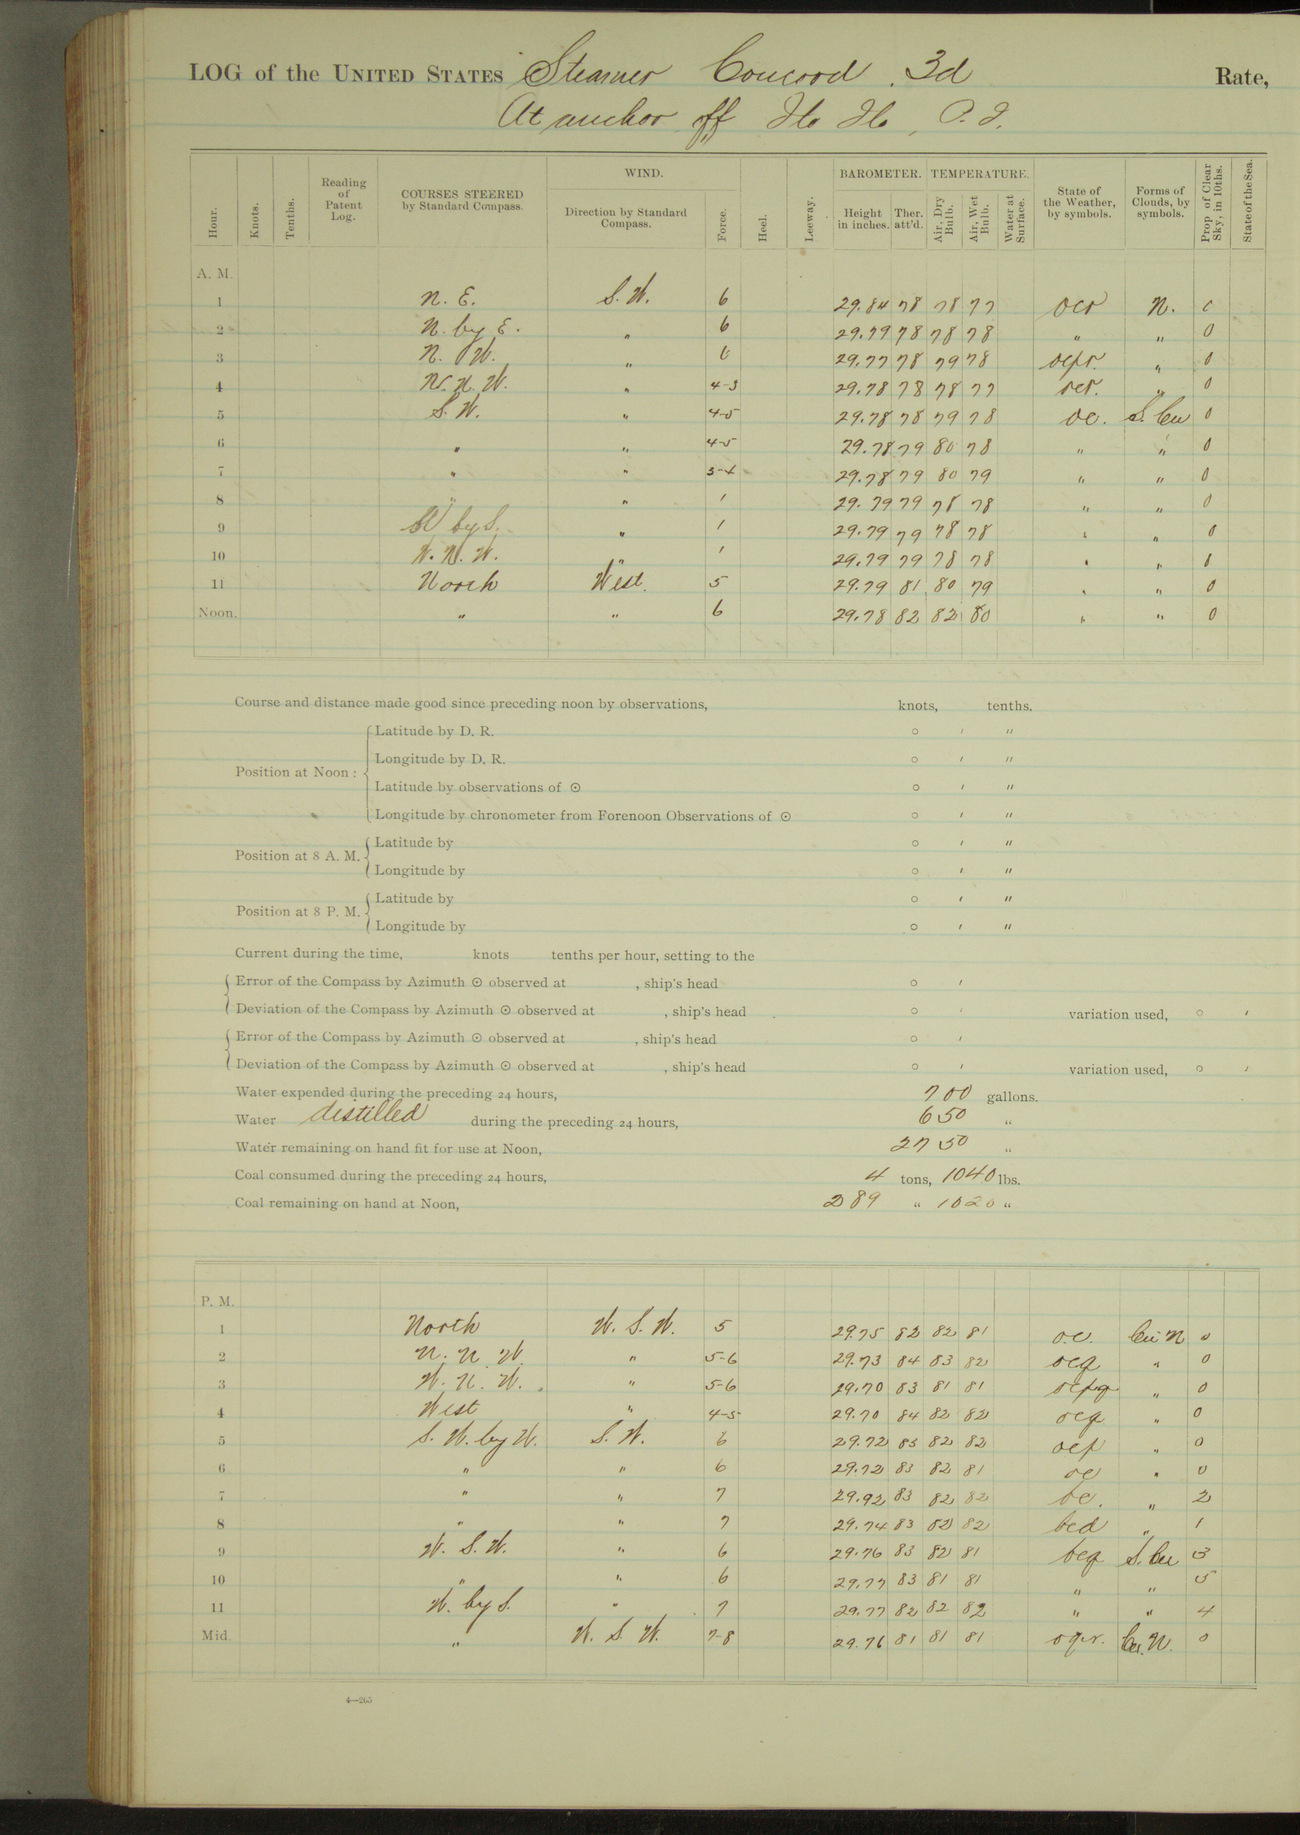 LOG of the UNITED STATES Steamer Concord, 3d Rate,
At anchor off Ilo Ilo, P. I.
Hour. Knots. Tenths. Reading of Patent Log. COURSES STEERED by Standard Compass. WIND. Direction by Standard Compass. Force. Heel. Leeway. BAROMETER. Height in inches. Ther. att'd. TEMPERATURE. Air, Dry Bulb. Air, Wet Bulb. Water at Surface. State of the Weather, by symbols. Forms of Clouds, by symbols. Prop. of Clear Sky, in 10ths. State of the Sea.
A. M.
1 N. E. S. W. 6 29.84 78 78 77 ocr N. 0
2 N. by E. " 6 29.79 78 78 78 " " 0
3 N. W. " 6 29.77 78 79 78 ocpr. " 0
4 N. N. W. " 4-3 29.78 78 78 77 ocr. " 0
5 S. W. " 4-5 29.78 78 79 78 oc. S. Cu 0
6 " " 4-5 29.78 79 80 78 " " 0
7 " " 3-4 29.78 79 80 79 " " 0
8 " " 1 29.79 79 78 78 " " 0
9 W by S. " 1 29.79 79 78 78 " " 0
10 W. N. W. " 1 29.79 79 78 78 " " 0
11 North West. 5 29.79 81 80 79 " " 0
Noon. " " 6 29.78 82 82 80 " " 0
Course and distance made good since preceding noon by observations, knots, tenths.
Position at Noon: Latitude by D. R. ○ ′ ″
Longitude by D. R. ○ ′ ″
Latitude by observations of ⊙ ○ ′ ″
Longitude by chronometer from Forenoon Observations of ⊙ ○ ′ ″
Position at 8 A. M. Latitude by ○ ′ ″
Longitude by ○ ′ ″
Position at 8 P. M. Latitude by ○ ′ ″
Longitude by ○ ′ ″
Current during the time, knots tenths per hour, setting to the
Error of the Compass by Azimuth ⊙ observed at , ship's head ○ ′
Deviation of the Compass by Azimuth ⊙ observed at , ship's head ○ ′ variation used, ○ ′
Error of the Compass by Azimuth ⊙ observed at , ship's head ○ ′
Deviation of the Compass by Azimuth ⊙ observed at , ship's head ○ ′ variation used, ○ ′
Water expended during the preceding 24 hours, 700 gallons.
Water distilled during the preceding 24 hours, 650 "
Water remaining on hand fit for use at Noon, 2750 "
Coal consumed during the preceding 24 hours, 4 tons, 1040 lbs.
Coal remaining on hand at Noon, 289 " 1020 "
P. M.
1 North W. S. W. 5 29.75 82 82 81 o.c. Cu N 0
2 N. N. W. " 5-6 29.73 84 83 82 ocq " 0
3 W. N. W. " 5-6 29.70 83 81 81 ocpq " 0
4 West " 4-5 29.70 84 82 82 ocq " 0
5 S. W. by W. S. W. 6 29.72 83 82 82 ocp " 0
6 " " 6 29.72 83 82 81 oc " 0
7 " " 7 29.92 83 82 82 bc. " 2
8 " " 7 29.74 83 82 82 bcd " 1
9 W. S. W. " 6 29.76 83 82 81 bcq S. Cu 3
10 " " 6 29.77 83 81 81 " " 5
11 W. by S. " 7 29.77 82 82 82 " " 4
Mid. " W. S. W. 7-8 29.76 81 81 81 oqr. Cu. N. 0
4—265